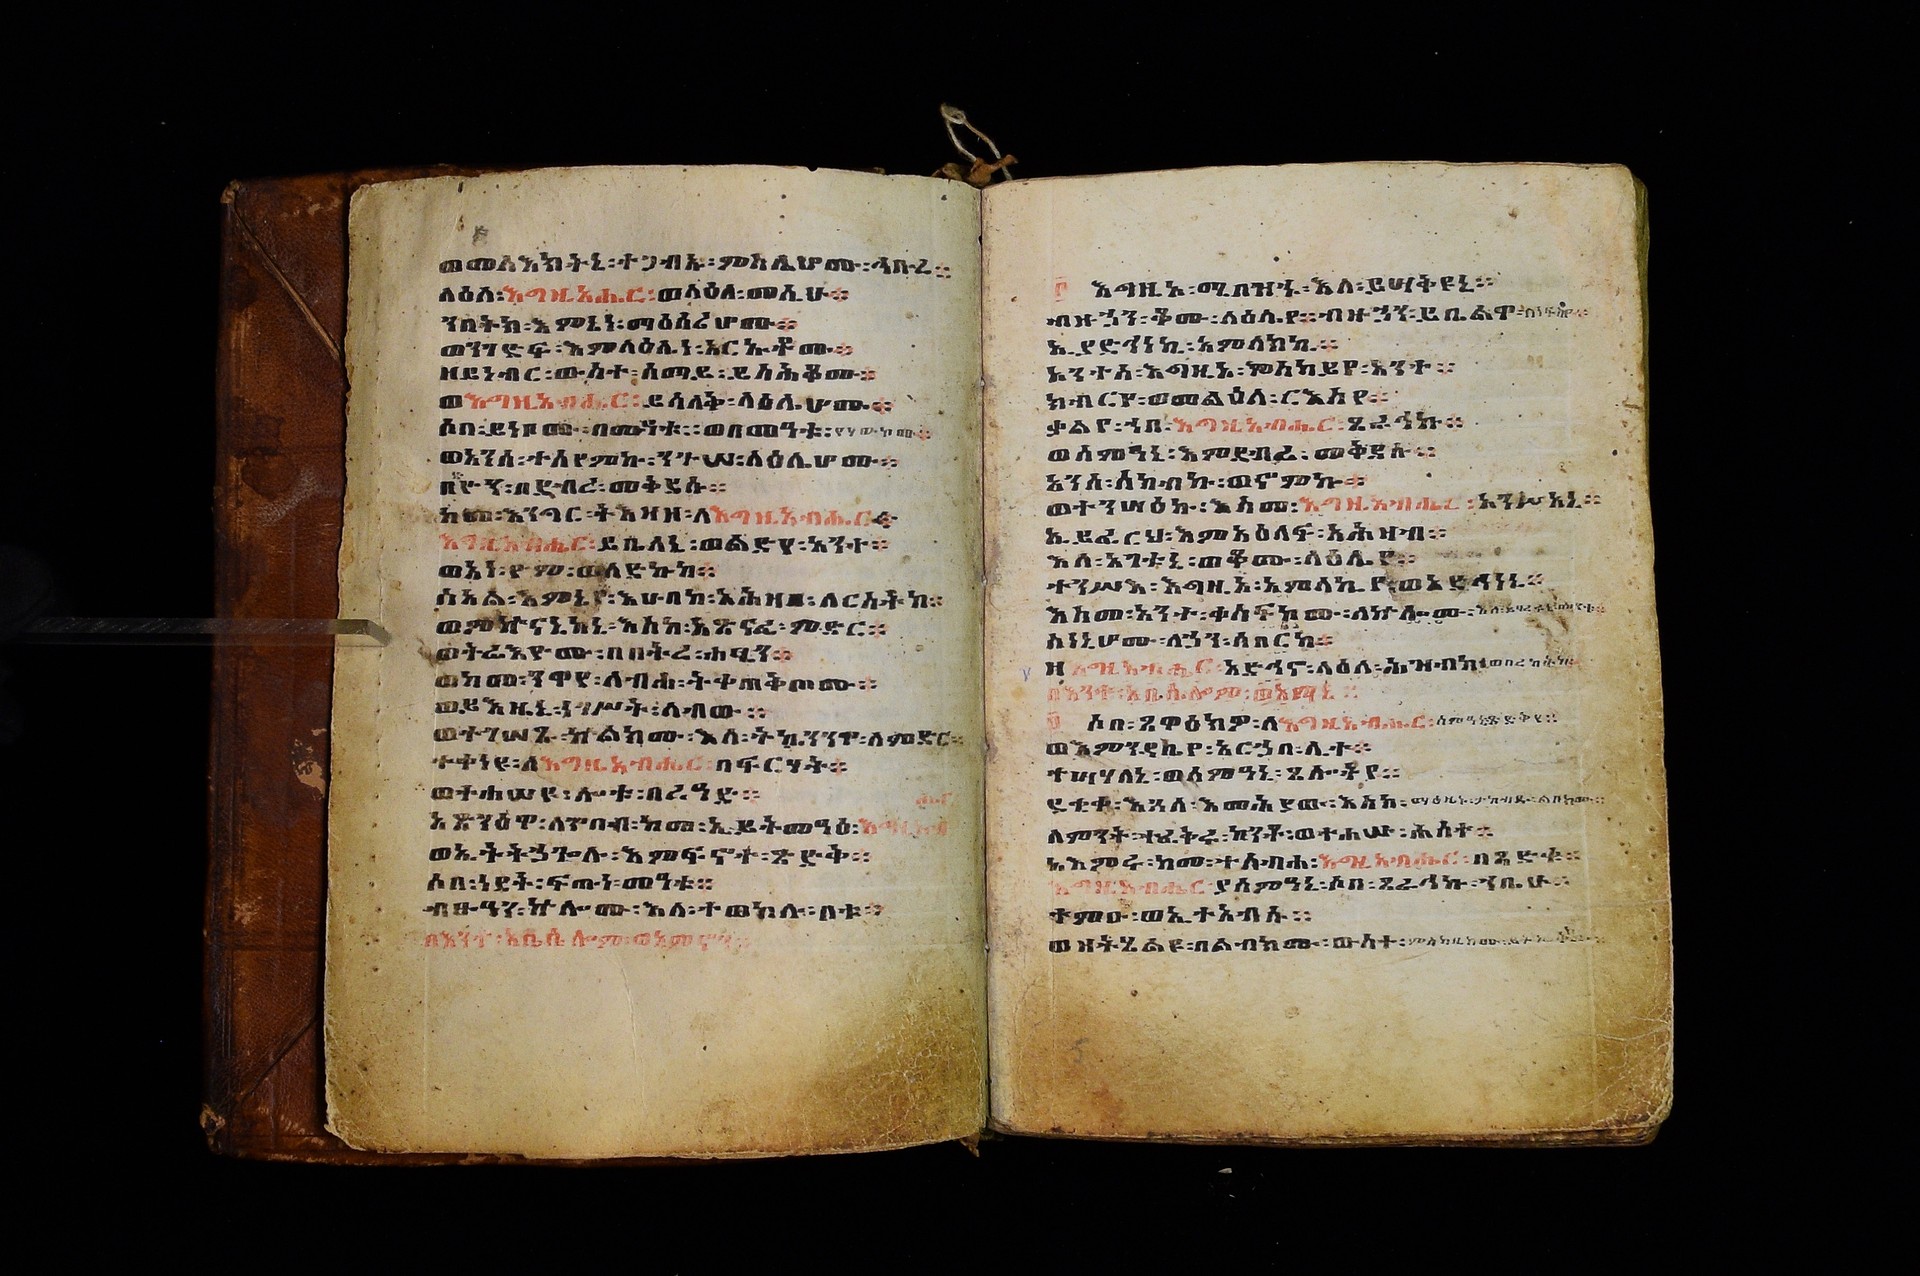 ወመላእክትኒ፡ተጋብኡ፡ምስሌሆሙ፡ኅቡረ።
ላዕለ፡እግዚአሔር፡ወላዕለ፡መሲሁ።
ንበትክ፡እምኔነ፡ማዕሰሪሆሙ።
ወንገድፍ፡እምላዕሌነ፡አርዑቶሙ።
ዘይነብር፡ውስተ፡ሰማይ፡ይስሕቆሙ።
ወእግዚአብሔር፡ይሳለቅ፡ላዕሌሆሙ።
ሶበ፡ይነቦሙ፡በመዓቱ፡ወበመዓቱ፡የሀውኮሙ።
ወአንሰ፡ተሰየምኩ፡ንጉሠ፡ላዕሌሆሙ።
በጽዮን፡በደብረ፡መቅደሱ።
ከመ፡እንግር፡ትእዛዘ፡ለእግዚአብሔር።
እግዚአብሔር፡ይቤለኒ፡ወልድየ፡አንተ።
ወአነ፡ዮም፡ወለድኩከ።
ሰአል፡እምኔየ፡እሁበከ፡አሕዛበ፡ለርስትከ።
ወምኵናኒከኒ፡እስከ፡አጽናፈ፡ምድር።
ወትሬእዮሙ፡በበትረ፡ሐፂን።
ወከመ፡ንዋየ፡ለብሓ፡ትቀጠቅጦሙ።
ወይእዜኒ፡ነገሥት፡ለብው።
ወተገሠጹ፡ኵልክሙ፡እለ፡ትኴንንዋ፡ለምድር።
ተቀነዩ፡ለእግዚአብሔር፡በፍርሃት።
ወተሐሠዩ፡ሎቱ፡በረዓድ።
ሔር
አጽንዕዋ፡ለጥበብ፡ከመ፡ኢይትመዓዕ፡እግዚአብ
ወኢትትኃጐሉ፡እምፍኖተ፡ጽድቅ።
ሶበ፡ነደት፡ፍጡነ፡መዓቱ።
ብፁዓን፡ኵሎሙ፡እለ፡ተወከሉ፡ቦቱ።
በእንተ፡አቤሴሎም፡ወአምኖን።
፫ እግዚኦ፡ሚበዝኁ፡እለ፡ይሣቅዩኒ።
ብዙኃን፡ቆሙ፡ላዕሌየ።ብዙኃን፡ይቤልዋ፡ለነፍስየ።
ኢያድኅነኪ፡አምላክኪ።
አንተሰ፡እግዚኦ፡ምስካይየ፡አንተ።
ክብርየ፡ወመልዕለ፡ርእስየ።
ቃልየ፡ኀበ፡እግዚአብሔር፡ጸራኅኩ።
ወሰምዓኒ፡እምደብረ፡መቅደሱ።
አንሰ፡ሰከብኩ፡ወኖምኩ።
ወተንሣዕኩ፡እስመ፡እግዚአብሔር፡አንሥአኒ።
ኢይፈርህ፡እምአዕላፍ፡አሕዛብ።
እለ፡አገቱኒ፡ወቆሙ፡ላዕሌየ።
ተንሥእ፡እግዚኦ፡አምላኪየ፡ወአድኅነኒ።
እስመ፡አንተ፡ቀሰፍኮሙ፡ለኵሎሙ፡
ስነኒሆሙ፡ለኃጥአን፡ሰበርከ።
ዘእግዚአብሔር፡አድኅኖ፡ላዕለ፡ሕዝብከ፡ወበረከትከ።
በእንተ፡አቤሴሎም፡ወአምኖን።
፬ ሶበ፡ጸዋዕክዎ፡ለእግዚአብሔር፡ሰምዓኒ፡ጽድቅየ።
ወእምንዳቤየ፡አርኃበ፡ሊተ።
ተሣሃለኒ፡ወሰምዓኒ፡ጸሎትየ።
ደቂቀ፡እጓለ፡እመሕያው፡እስከ፡ማዕዜኑ፡ታከብዱ፡ልበክሙ።
ለምንት፡ታፈቅሩ፡ከንቶ፡ወተሐሡ፡ሐሰተ።
አእምሩ፡ከመ፡ተሰብሐ፡እግዚአብሔር፡በጻድቁ።
እግዚአብሔር፡ያሰምዓኒ፡ሶበ፡ጸራኅኩ፡ኀቤሁ።
ተምዑ፡ወኢተአብሱ።
ወዘትሄልዩ፡በልብክሙ፡ውስተ፡